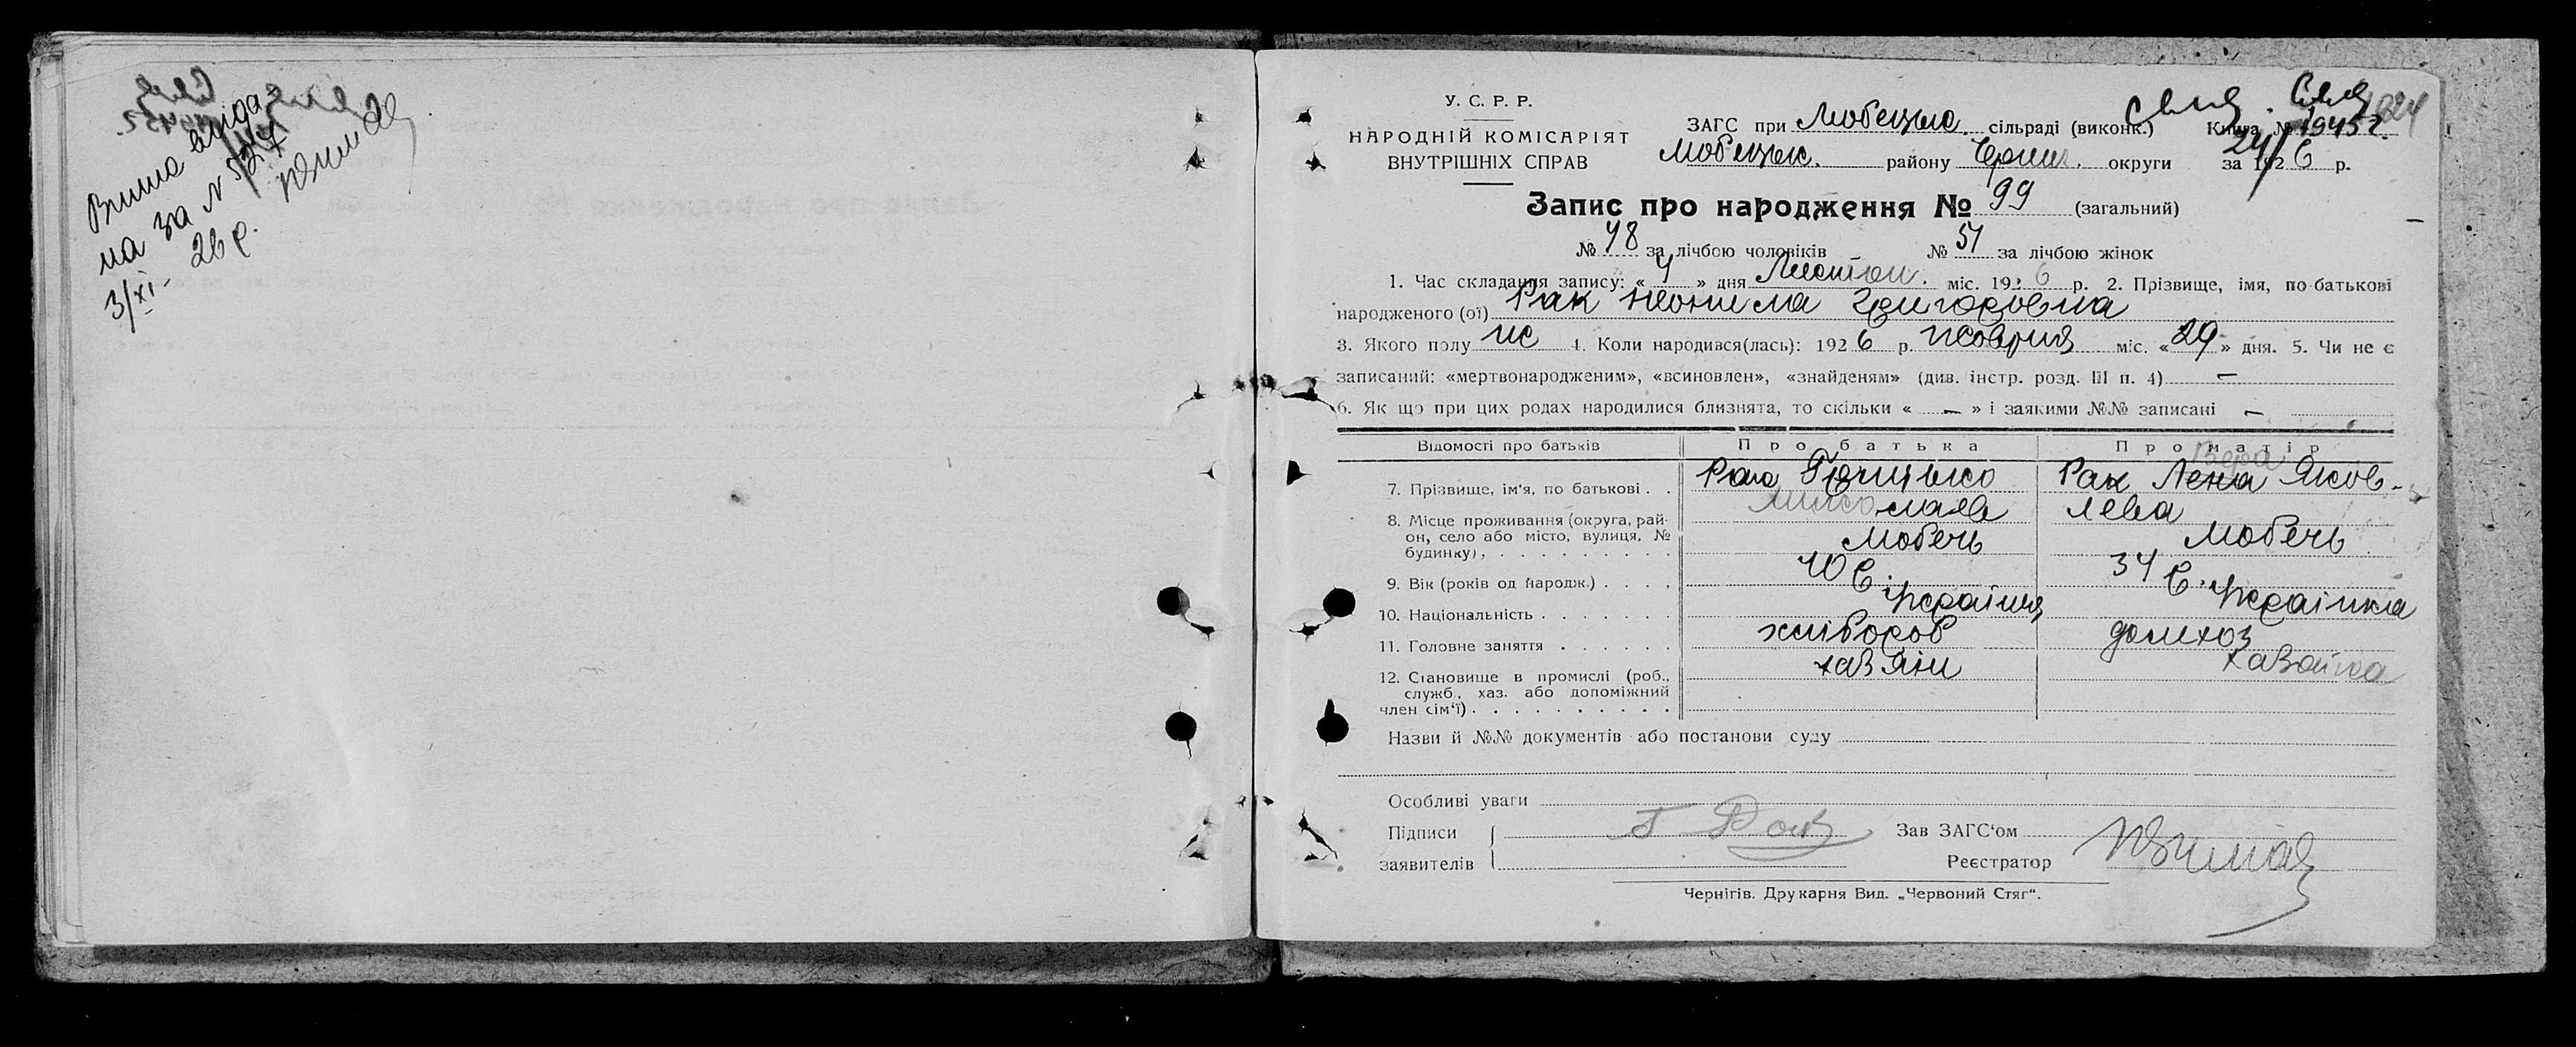 Випис видa-
на за № 527
3/XI- 26 р.
У. С. Р. Р.
НАРОДНІЙ КОМІСАРІЯТ
ВНУТРІШНІХ СПРАВ
ЗАГС при Любецьк. сільраді (виконк.) Книга №
Любецьк. району Черниг. округи за 1926 р.
Запис про народження № 99 (загальний)
№ 48 за лічбою чоловіків № 51 за лічбою жінок
1. Час складання запису: « 4 » дня Листоп. міс. 1926 р. 2. Прізвище, імя, по батькові
народженого (ої) Рак Неонила Григоровна
3. Якого полу жс 4. Коли народився(лась): 1926 р. жовтня міс. « 29 » дня. 5. Чи не є
записаний: «мертвонародженим», «всиновлен», «знайденям» (див. інстр. розд. III п. 4) —
6. Як що при цих родах народилися близнята, то скільки « — » і заякими №№ записані —
Відомості про батьків Про батька Про матір
Вера
7. Прізвище, ім'я, по батькові . . Рак Грицько Рак Лена Яков-
лева
8. Місце проживання (округа, рай-
он, село або місто, вулиця, №
будинку), . . . . . . . . . . Любечь Любечь
9. Вік (років од народж.) . . . . 40 р. 34 р.
10. Національність . . . . . . . українць українка
11. Головне заняття . . . . . . хлібороб домхоз
12. Становище в промислі (роб., хазяїн хазайка
служб., хаз. або допоміжний
член сім'ї) . . . . . . . . . .
Назви й №№ документів або постанови суду
Особливі уваги
Підписи Г Рак Зав ЗАГС'ом
заявителів Реєстратор
Чернігів. Друкарня Вид. „Червоний Стяг“.